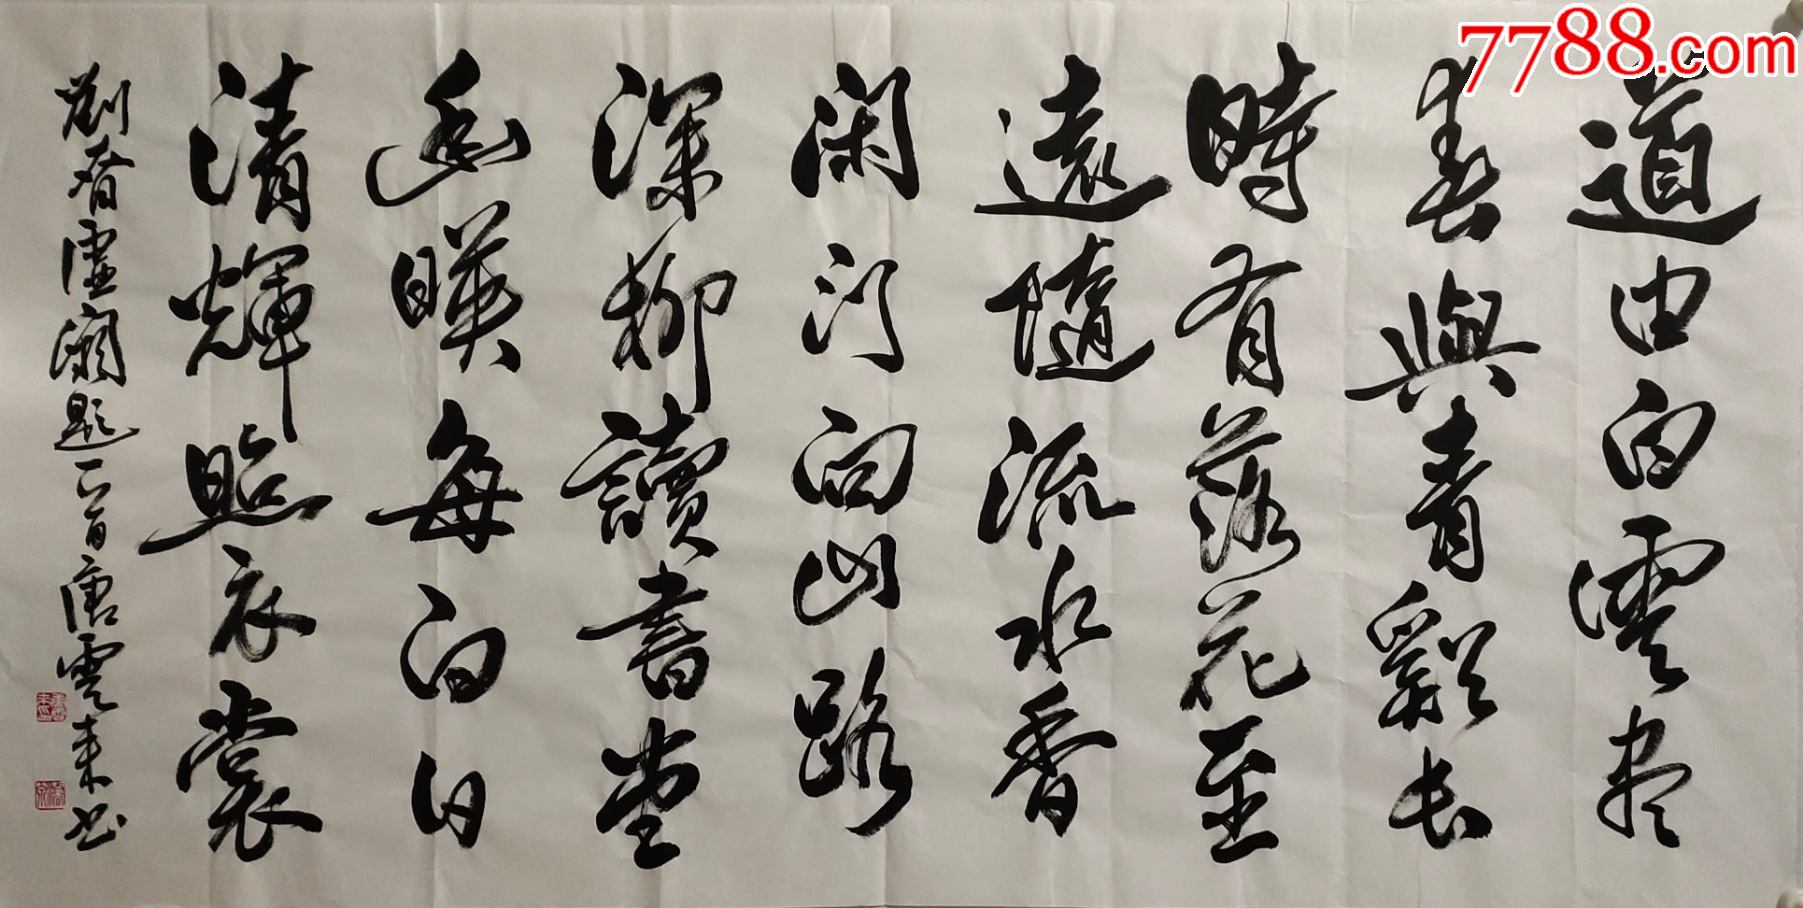 7788.com
道由白雲盡
春與青谿長
時有落花至
遠隨流水香
闲门向山路
深柳讀書堂
幽暎每白日
清輝照衣裳
劉眘虛闕題一首唐雲來书